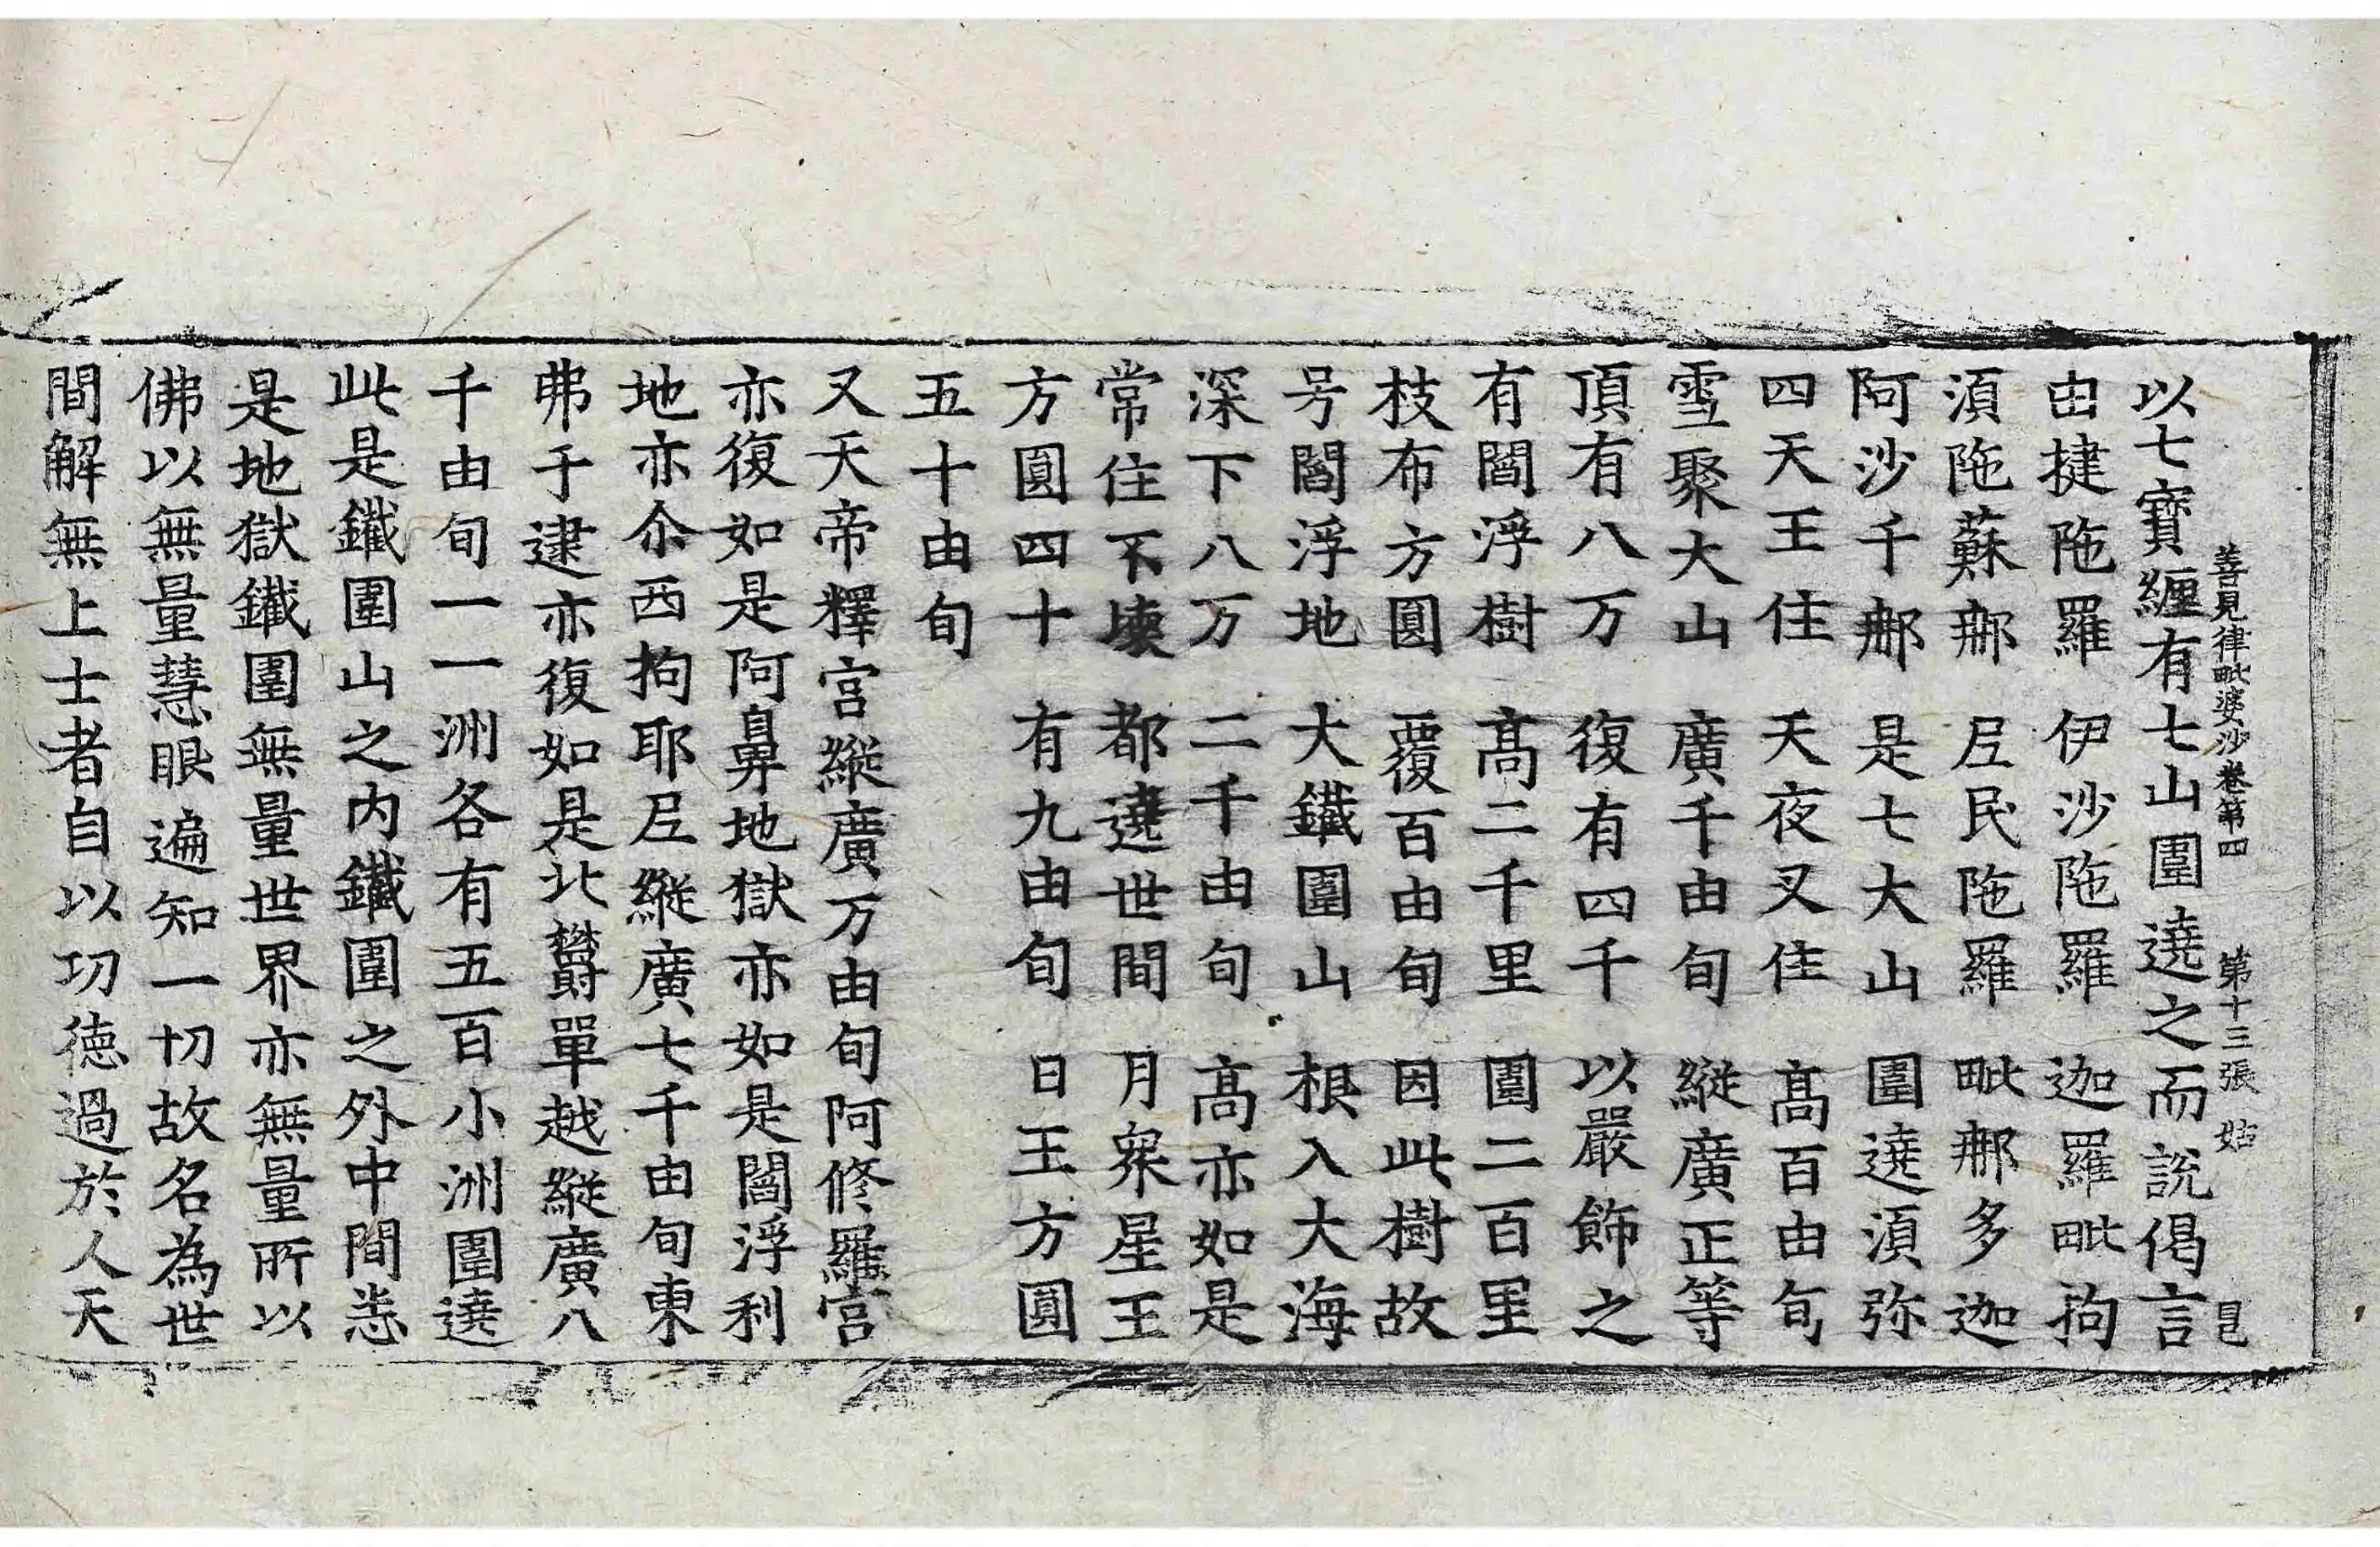 善見律毗婆沙卷第四 第十三張 姑
以七寶纏有七山圍遶之而說偈言
由揵陁羅 伊沙陁羅 迦羅毗拘
湏陁蘇𨚗 𡰱民陁羅 毗𨚗多迦
阿沙千𨚗 是七大山 圍遶湏弥
四天王住 天夜叉住 髙百由旬
雪聚大山 廣千由旬 縱廣正等
頂有八万 復有四千 以嚴飾之
有閻浮樹 髙二千里 圍二百里
枝布方圓 覆百由旬 因此樹故
号閻浮地 大鐵圍山 根入大海
深下八万 二千由旬 髙亦如是
常住不壊 都遶世間 月衆星王
方圓四十 有九由旬 日王方圓
五十由旬
又天帝釋宫縱廣万由旬阿修羅宫
亦復如是阿鼻地獄亦如是閻浮利
地亦尒西拘耶𡰱縱廣七千由旬東
弗于逮亦復如是北欝單越縱廣八
千由旬一一洲各有五百小洲圍遶
此是鐵圍山之内鐵圍之外中間恙
是地獄鐵圍無量世界亦無量所以
佛以無量慧眼遍知一切故名為世
間解無上士者自以功德過於人天